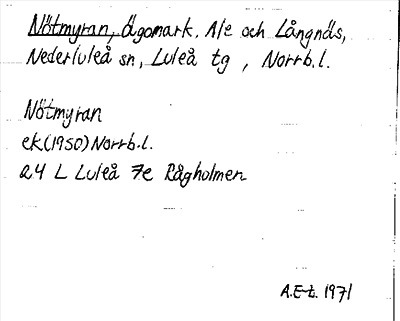 Nötmyran, Ägomark, Ale och Långnäs,
Nederluleå sn, Luleå tg, Norrb.l.
Nötmyran
ek(1950) Norrb.l.
24 L Luleå 7e Rågholmen
A.E-L. 1971